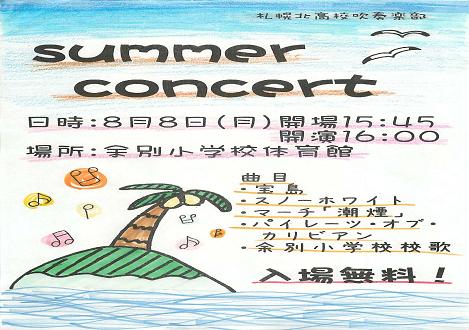 札幌北高校吹奏楽部
summer
concert
日時:8月8日(月)開場15:45
開演16:00
場所:余別小学校体育館
曲目
・宝島
・スノーホワイト
・マーチ「潮煙」
・パイレーツ・オブ・
カリビアン
・余別小学校校歌
入場無料!